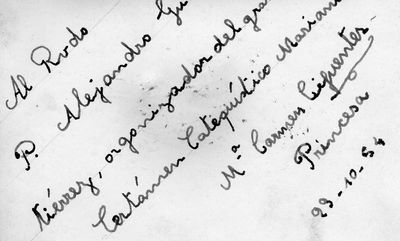 Al Rvdo
P. Alejandro Gu
tiérrez, organizador del gra
Certámen Catequístico Mariano
Mª Carmen Cifuentes
Princesa
29-10-54